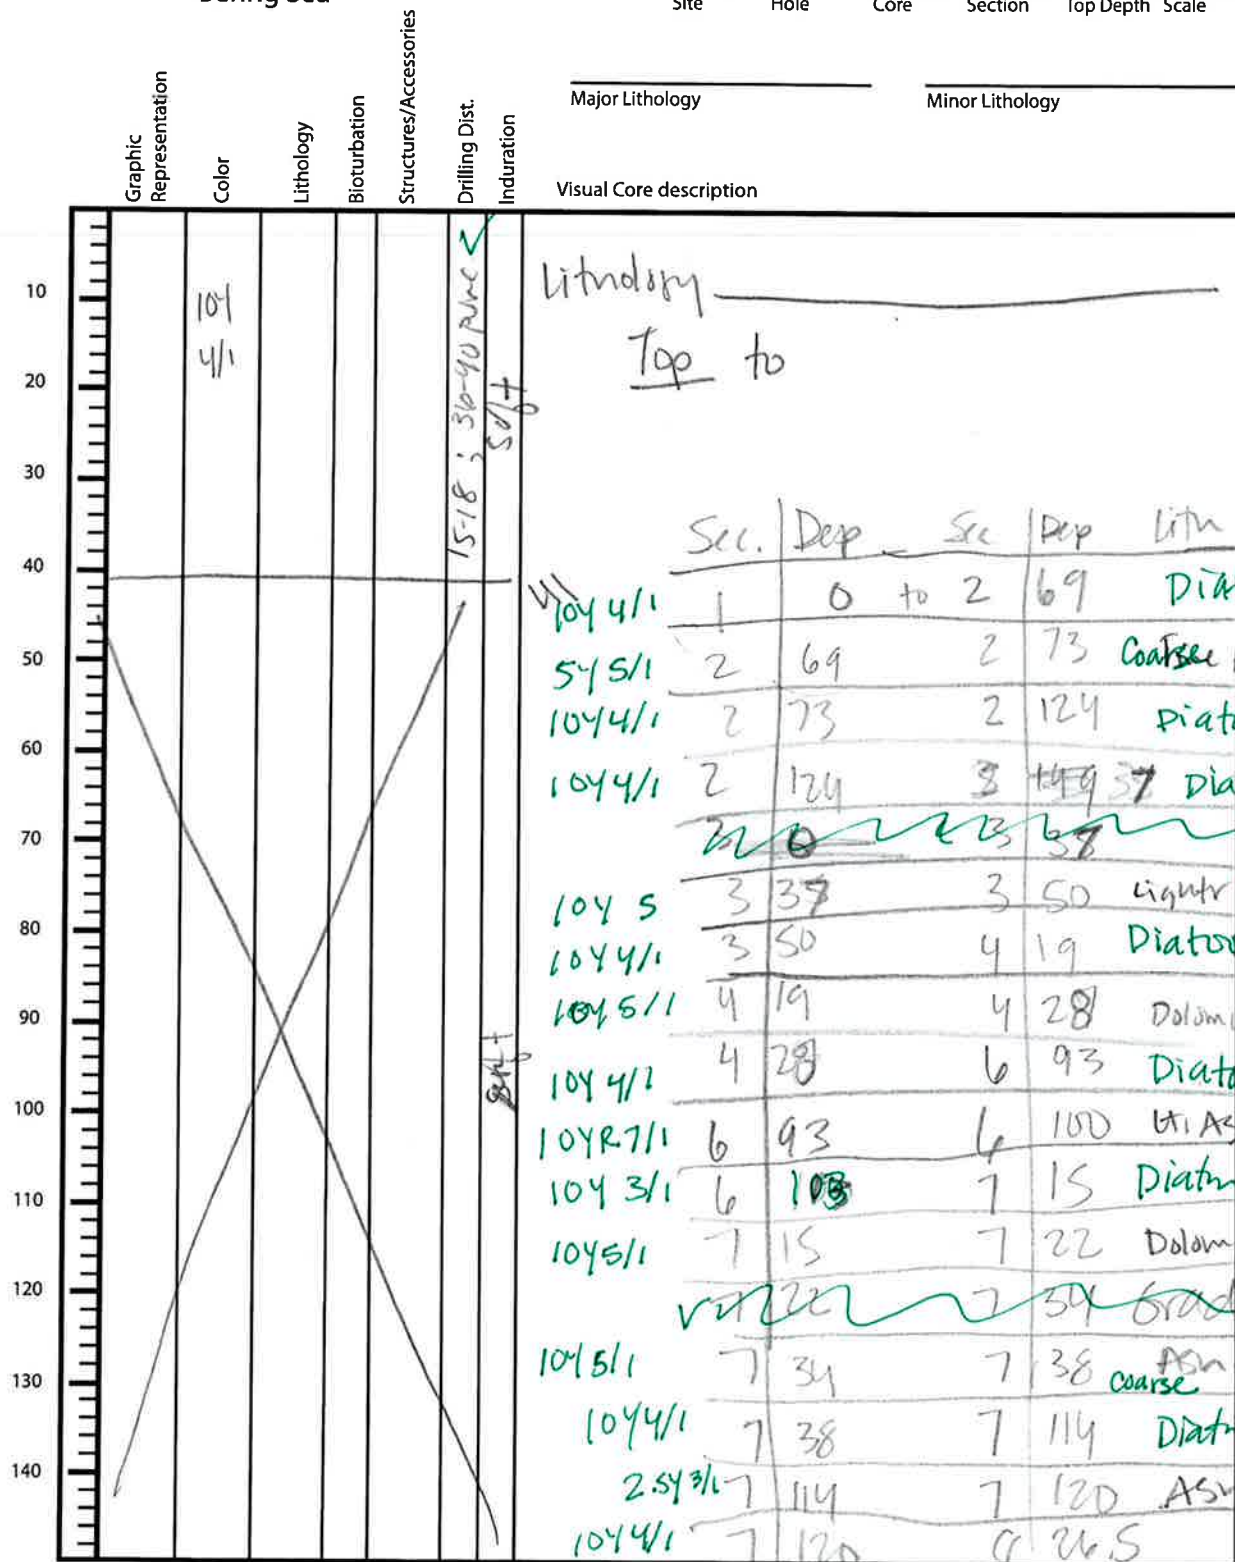 Site Hole Core Section Top Depth Scale
Major Lithology Minor Lithology
Graphic Representation
Color
Lithology
Bioturbation
Structures/Accessories
Drilling Dist.
Induration
Visual Core description
10
20
30
40
50
60
70
80
90
100
110
120
130
140
10Y
4/1
15-18 ; 36-40
soft
soft
Lithology
Top to
Sec. Dep Sec Dep Lith
10Y 4/1 1 0 to 2 69 Dia
5Y 5/1 2 69 2 73 Coarse
10Y 4/1 2 73 2 124 Diat
10Y 4/1 2 124 3 37 Dia
0 3 37
10Y 5 3 37 3 50 Light
10Y 4/1 3 50 4 19 Diato
10Y 5/1 4 19 4 28 Dolom
10Y 4/1 4 28 6 93 Diat
10YR 7/1 6 93 6 100 As
10Y 3/1 6 103 7 15 Diat
10Y 5/1 7 15 7 22 Dolom
7 22 7 34 Grad
10Y 5/1 7 34 7 38 Coarse Ash
10Y 4/1 7 38 7 114 Diat
2.5Y 3/1 7 114 7 120 Ash
10Y 4/1 7 120 8 26.5